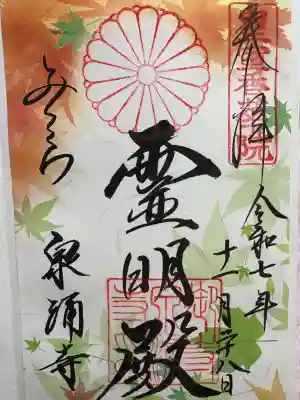 奉拝
令和七年
十一月二十八日
霊明殿
みてら
泉涌寺